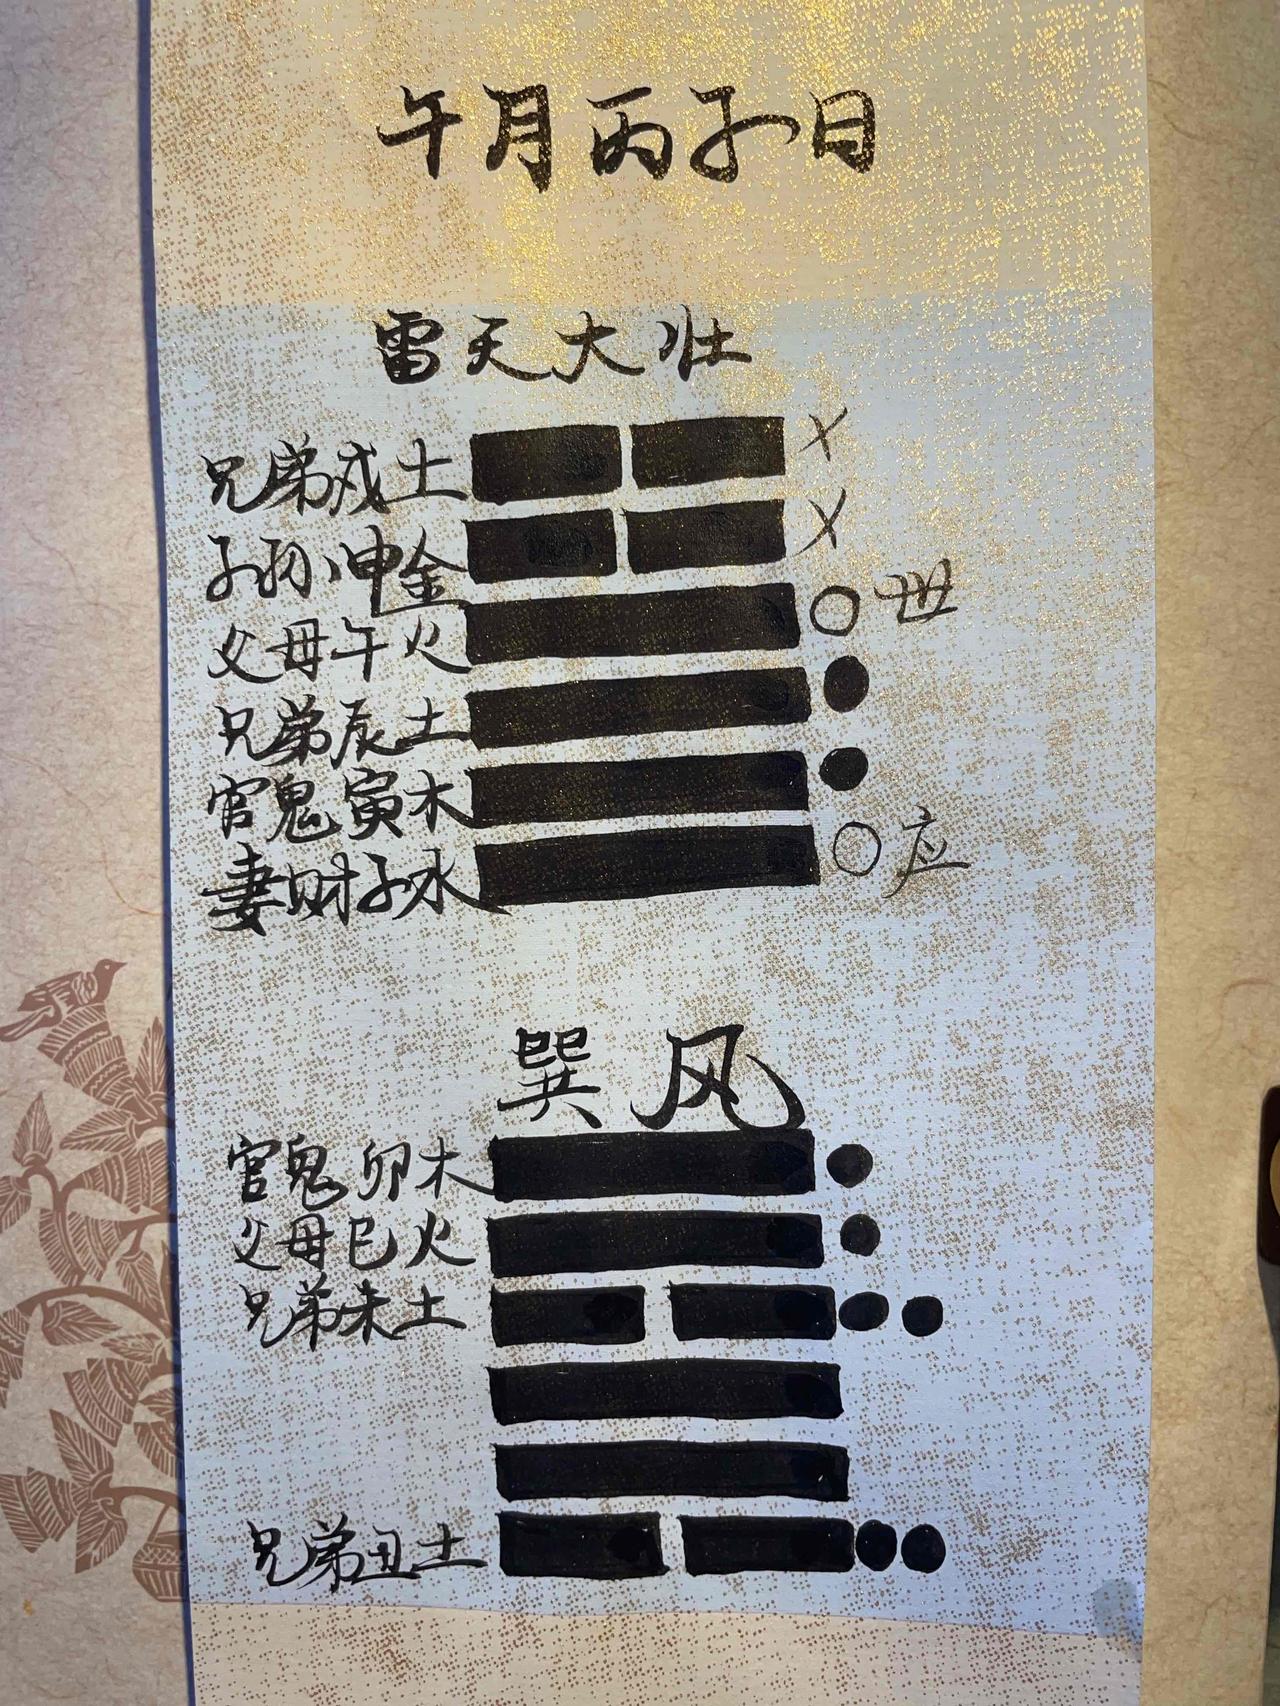 午月丙子日
雷天大壮
兄弟戌土 ×
子孙申金 ×
父母午火 ○ 世
兄弟辰土
官鬼寅木
妻财子水 ○ 应
巽风
官鬼卯木
父母巳火
兄弟未土
兄弟丑土